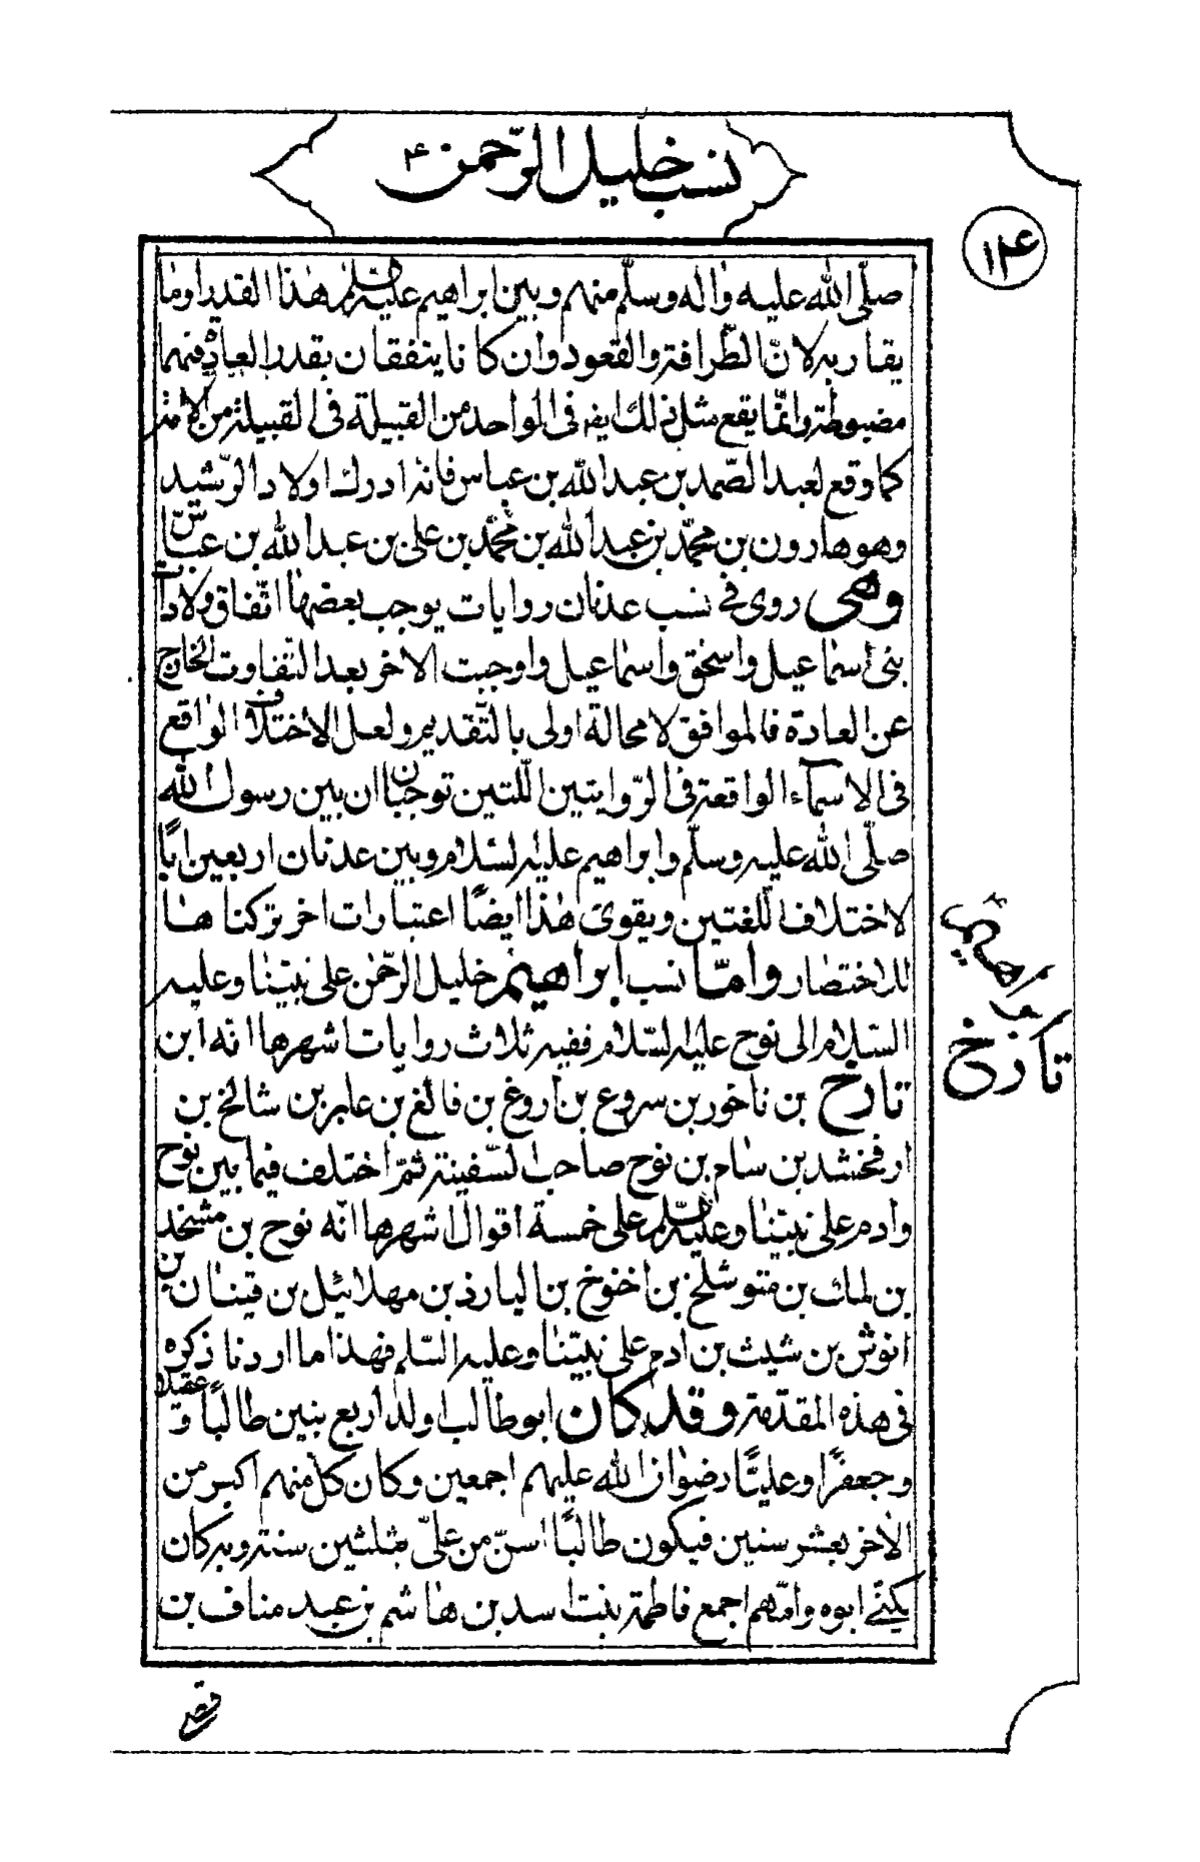 نسب خلیل الرّحمن ۴
۱۴
صلّی الله علیه واٰله وسلّم منهم وبین ابراهیم علیه السّلم هٰذا القدر اوما
یقاربه لانّ الطّرافة والقعود وان کانا یتفقان بقدر العادة فنها
مضبوطة وانّما یقع مثل ذلك فی الواحد من القبیلة فی القبیلة من
کما وقع لعبد الصّمد بن عبد الله بن عباس فانه ادرك اولاد الرّشید
وهو هارون بن محمّد بن عبد الله بن محمّد بن علی بن عبد الله بن عبّاس
وهی روی فی نسب عدنان روایات یوجب بعضها اتّفاق ولادات
بنی اسماعیل واسحٰق واسماعیل واوجبت الاخر بعد التّفاوت الخارج
عن العادة فالموافق لا محالة اولی بالتّقدیم ولعل الاختلاف الواقع
فی الاسمآء الواقعة فی الرّوایتین اللّتین توجبان ان بین رسول الله
صلّی الله علیه وسلّم وابراهیم علیه السّلام وبین عدنان اربعین ابًا
لاختلاف اللّغتین ویقوی هٰذا ایضًا اعتبارات اخر ترکناها
للاختصار وامّا نسب ابراهیم خلیل الرّحمٰن علی نبیّنا وعلیه
السّلام الی نوح علیه السّلام ففیه ثلاث روایات اشهرها انه ابن
تارخ بن ناخور بن سروع بن اروغ بن فالغ بن عابر بن شالخ بن
ارفخشد بن سام بن نوح صاحب السّفینة ثمّ اختلف فیما بین نوح
وادم علی نبیّنا وعلیه السّلم علی خمسة اقوال اشهرها انّه نوح بن مشخد
بن لمك بن متوشلخ بن اخنوخ بن الیارذ بن مهلائیل بن قینان بن
انوش بن شیث بن ادم علی نبیّنا وعلیه السّلم فهذا ما اردنا ذکره
فی هذه المقدّمة وقد کان ابو طالب اولد اربع بنین طالبًا و عقیلا
وجعفرًا وعلیًّا رضوان الله علیهم اجمعین وکان کلّ منهم اکبر من
الاٰخر بعشر سنین فیکون طالبًا اسنّ من علیّ بثلثین سنة وبه کان
یکنّی ابوه وامّهم اجمع فاطمة بنت اسد بن هاشم بن عبد مناف بن
تارخ